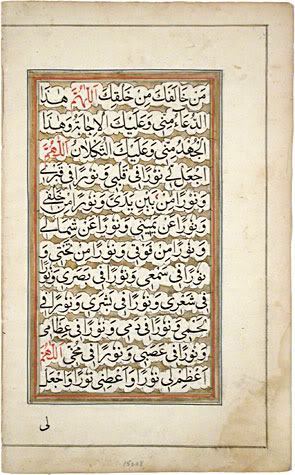 مَنْ خَالَفَكَ مِنْ خَلْقِكَ اَللّٰهُمَّ هٰذَا
الدُّعَاءُ مِنِّى وَعَلَيْكَ الْاِجَابَةُ وَهٰذَا
الْجُهْدُ مِنِّى وَعَلَيْكَ التُّكْلَانُ اَللّٰهُمَّ
اجْعَلْ لِى نُورًا فِى قَلْبِى وَنُورًا فِى قَبْرِى
وَنُورًا مِنْ بَيْنِ يَدَىَّ وَنُورًا مِنْ خَلْفِى
وَنُورًا عَنْ يَمِينِى وَنُورًا عَنْ شِمَالِى
وَنُورًا مِنْ فَوْقِى وَنُورًا مِنْ تَحْتِى وَ
نُورًا فِى سَمْعِى وَنُورًا فِى بَصَرِى وَنُورًا
فِى شَعْرِى وَنُورًا فِى بَشَرِى وَنُورًا فِى
لَحْمِى وَنُورًا فِى دَمِى وَنُورًا فِى عِظَامِى
وَنُورًا فِى عَصَبِى وَنُورًا فِى مُخِّى اَللّٰهُمَّ
اَعْظِمْ لِى نُورًا وَاَعْطِنِى نُورًا وَاجْعَلْ
لى